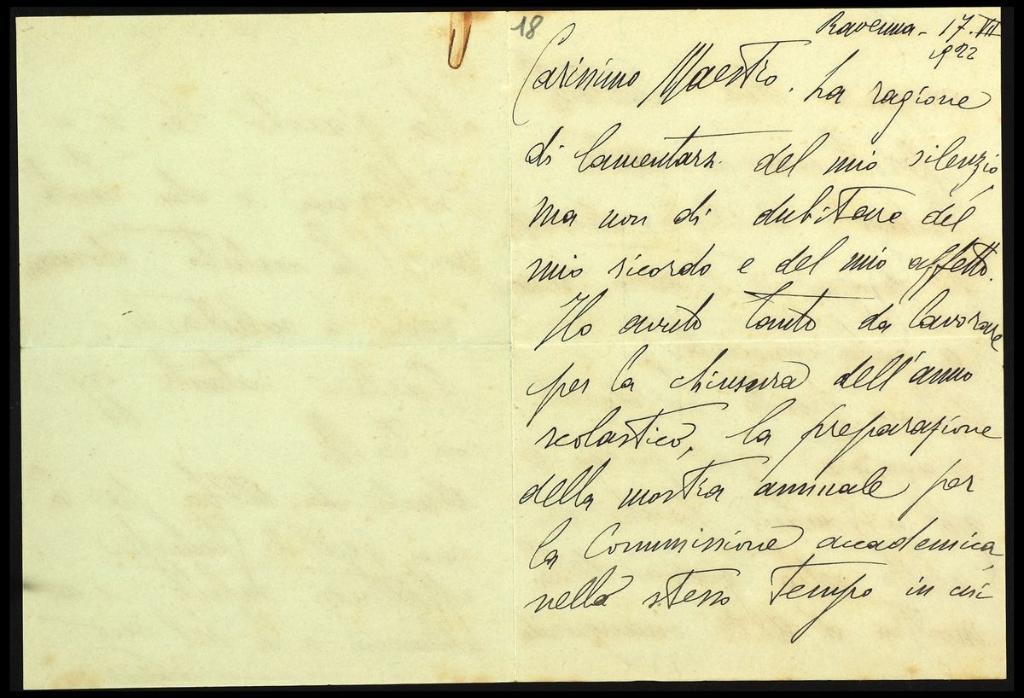 18
Ravenna - 17. VII
1922
Carissimo Maestro. ha ragione
di lamentarsi del mio silenzio,
ma non di dubitare del
mio ricordo e del mio affetto.
Ho avuto tanto da lavorare
per la chiusura dell'anno
scolastico, la preparazione
della mostra annuale per
la Commissione accademica
nello stesso tempo in cui